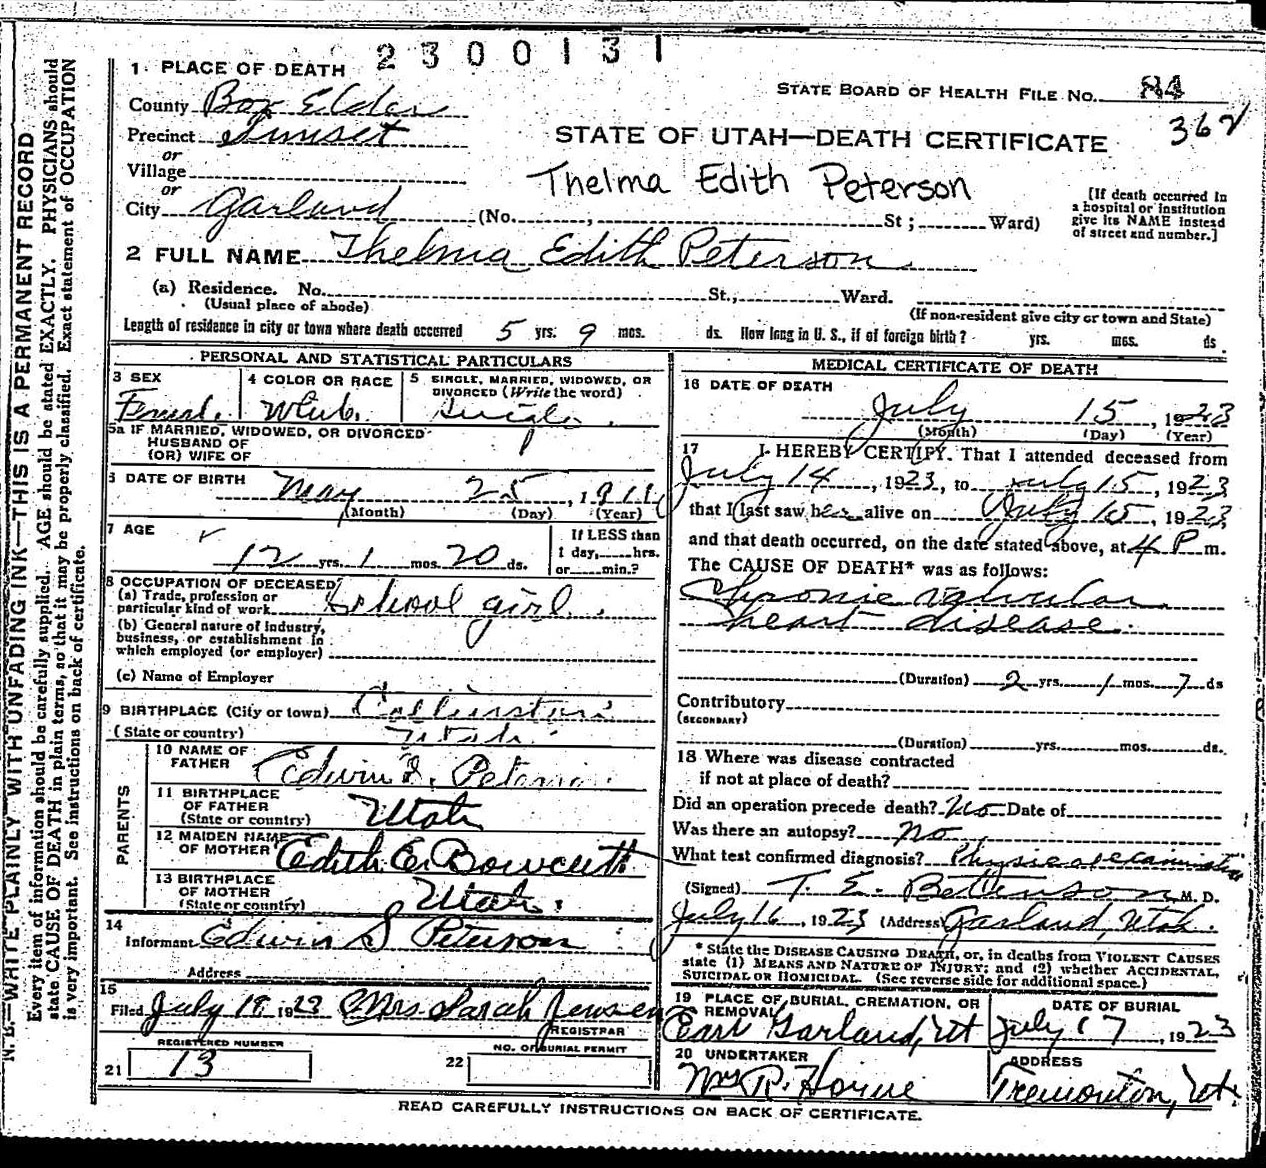 2300131
1 PLACE OF DEATH
STATE BOARD OF HEALTH FILE NO. 84
County Box Elder
362
Precinct Sunset
STATE OF UTAH—DEATH CERTIFICATE
or
Village
Thelma Edith Peterson
or
City Garland (No. , St ; Ward)
[If death occurred in
a hospital or institution
give its NAME instead
of street and number.]
2 FULL NAME Thelma Edith Peterson
(a) Residence. No. St., Ward.
(Usual place of abode)
(If non-resident give city or town and State)
Length of residence in city or town where death occurred 5 yrs. 9 mos. ds. How long in U. S., if of foreign birth? yrs. mos. ds.
PERSONAL AND STATISTICAL PARTICULARS
3 SEX
4 COLOR OR RACE
5 SINGLE, MARRIED, WIDOWED, OR
DIVORCED (Write the word)
Femal. White. Single.
5a IF MARRIED, WIDOWED, OR DIVORCED
HUSBAND OF
(OR) WIFE OF
6 DATE OF BIRTH May 25, 1911
(Month) (Day) (Year)
7 AGE
12 yrs. 1 mos. 20 ds.
If LESS than
1 day, hrs.
or min.?
8 OCCUPATION OF DECEASED
(a) Trade, profession or
particular kind of work School girl.
(b) General nature of industry,
business, or establishment in
which employed (or employer)
(c) Name of Employer
9 BIRTHPLACE (City or town) Collinston
(State or country) Utah
PARENTS
10 NAME OF
FATHER Edwin
11 BIRTHPLACE
OF FATHER
(State or country) Utah
12 MAIDEN NAME
OF MOTHER Edith E. Bowcutt
13 BIRTHPLACE
OF MOTHER
(State or country) Utah.
14
Informant Edwin S Peterson
Address
15
Filed July 18 1923 Mrs Sarah Jensen
REGISTRAR
REGISTERED NUMBER
21 13
NO. OF BURIAL PERMIT
22
MEDICAL CERTIFICATE OF DEATH
16 DATE OF DEATH
July 15, 1923
(Month) (Day) (Year)
17 I HEREBY CERTIFY. That I attended deceased from
July 14, 1923, to July 15, 1923
that I last saw her alive on July 15, 1923
and that death occurred, on the date stated above, at 4 P m.
The CAUSE OF DEATH* was as follows:
Chronic valvular
heart disease.
(Duration) 2 yrs. 1 mos. 7 ds
Contributory
(SECONDARY)
(Duration) yrs. mos. ds.
18 Where was disease contracted
if not at place of death?
Did an operation precede death? No Date of
Was there an autopsy? no
What test confirmed diagnosis? Physical examination
(Signed) T. E. Betenson M. D.
July 16, 1923 (Address) Garland, Utah.
* State the DISEASE CAUSING DEATH, or, in deaths from VIOLENT CAUSES
state (1) MEANS AND NATURE OF INJURY; and (2) whether ACCIDENTAL,
SUICIDAL OR HOMICIDAL. (See reverse side for additional space.)
19 PLACE OF BURIAL, CREMATION, OR
REMOVAL
East Garland, Ut
DATE OF BURIAL
July 17, 1923
20 UNDERTAKER
ADDRESS
Tremonton, Ut.
READ CAREFULLY INSTRUCTIONS ON BACK OF CERTIFICATE.
N. B.—WRITE PLAINLY, WITH UNFADING INK—THIS IS A PERMANENT RECORD
Every item of information should be carefully supplied. AGE should be stated EXACTLY. PHYSICIANS should
state CAUSE OF DEATH in plain terms, so that it may be properly classified. Exact statement of OCCUPATION
is very important. See instructions on back of certificate.